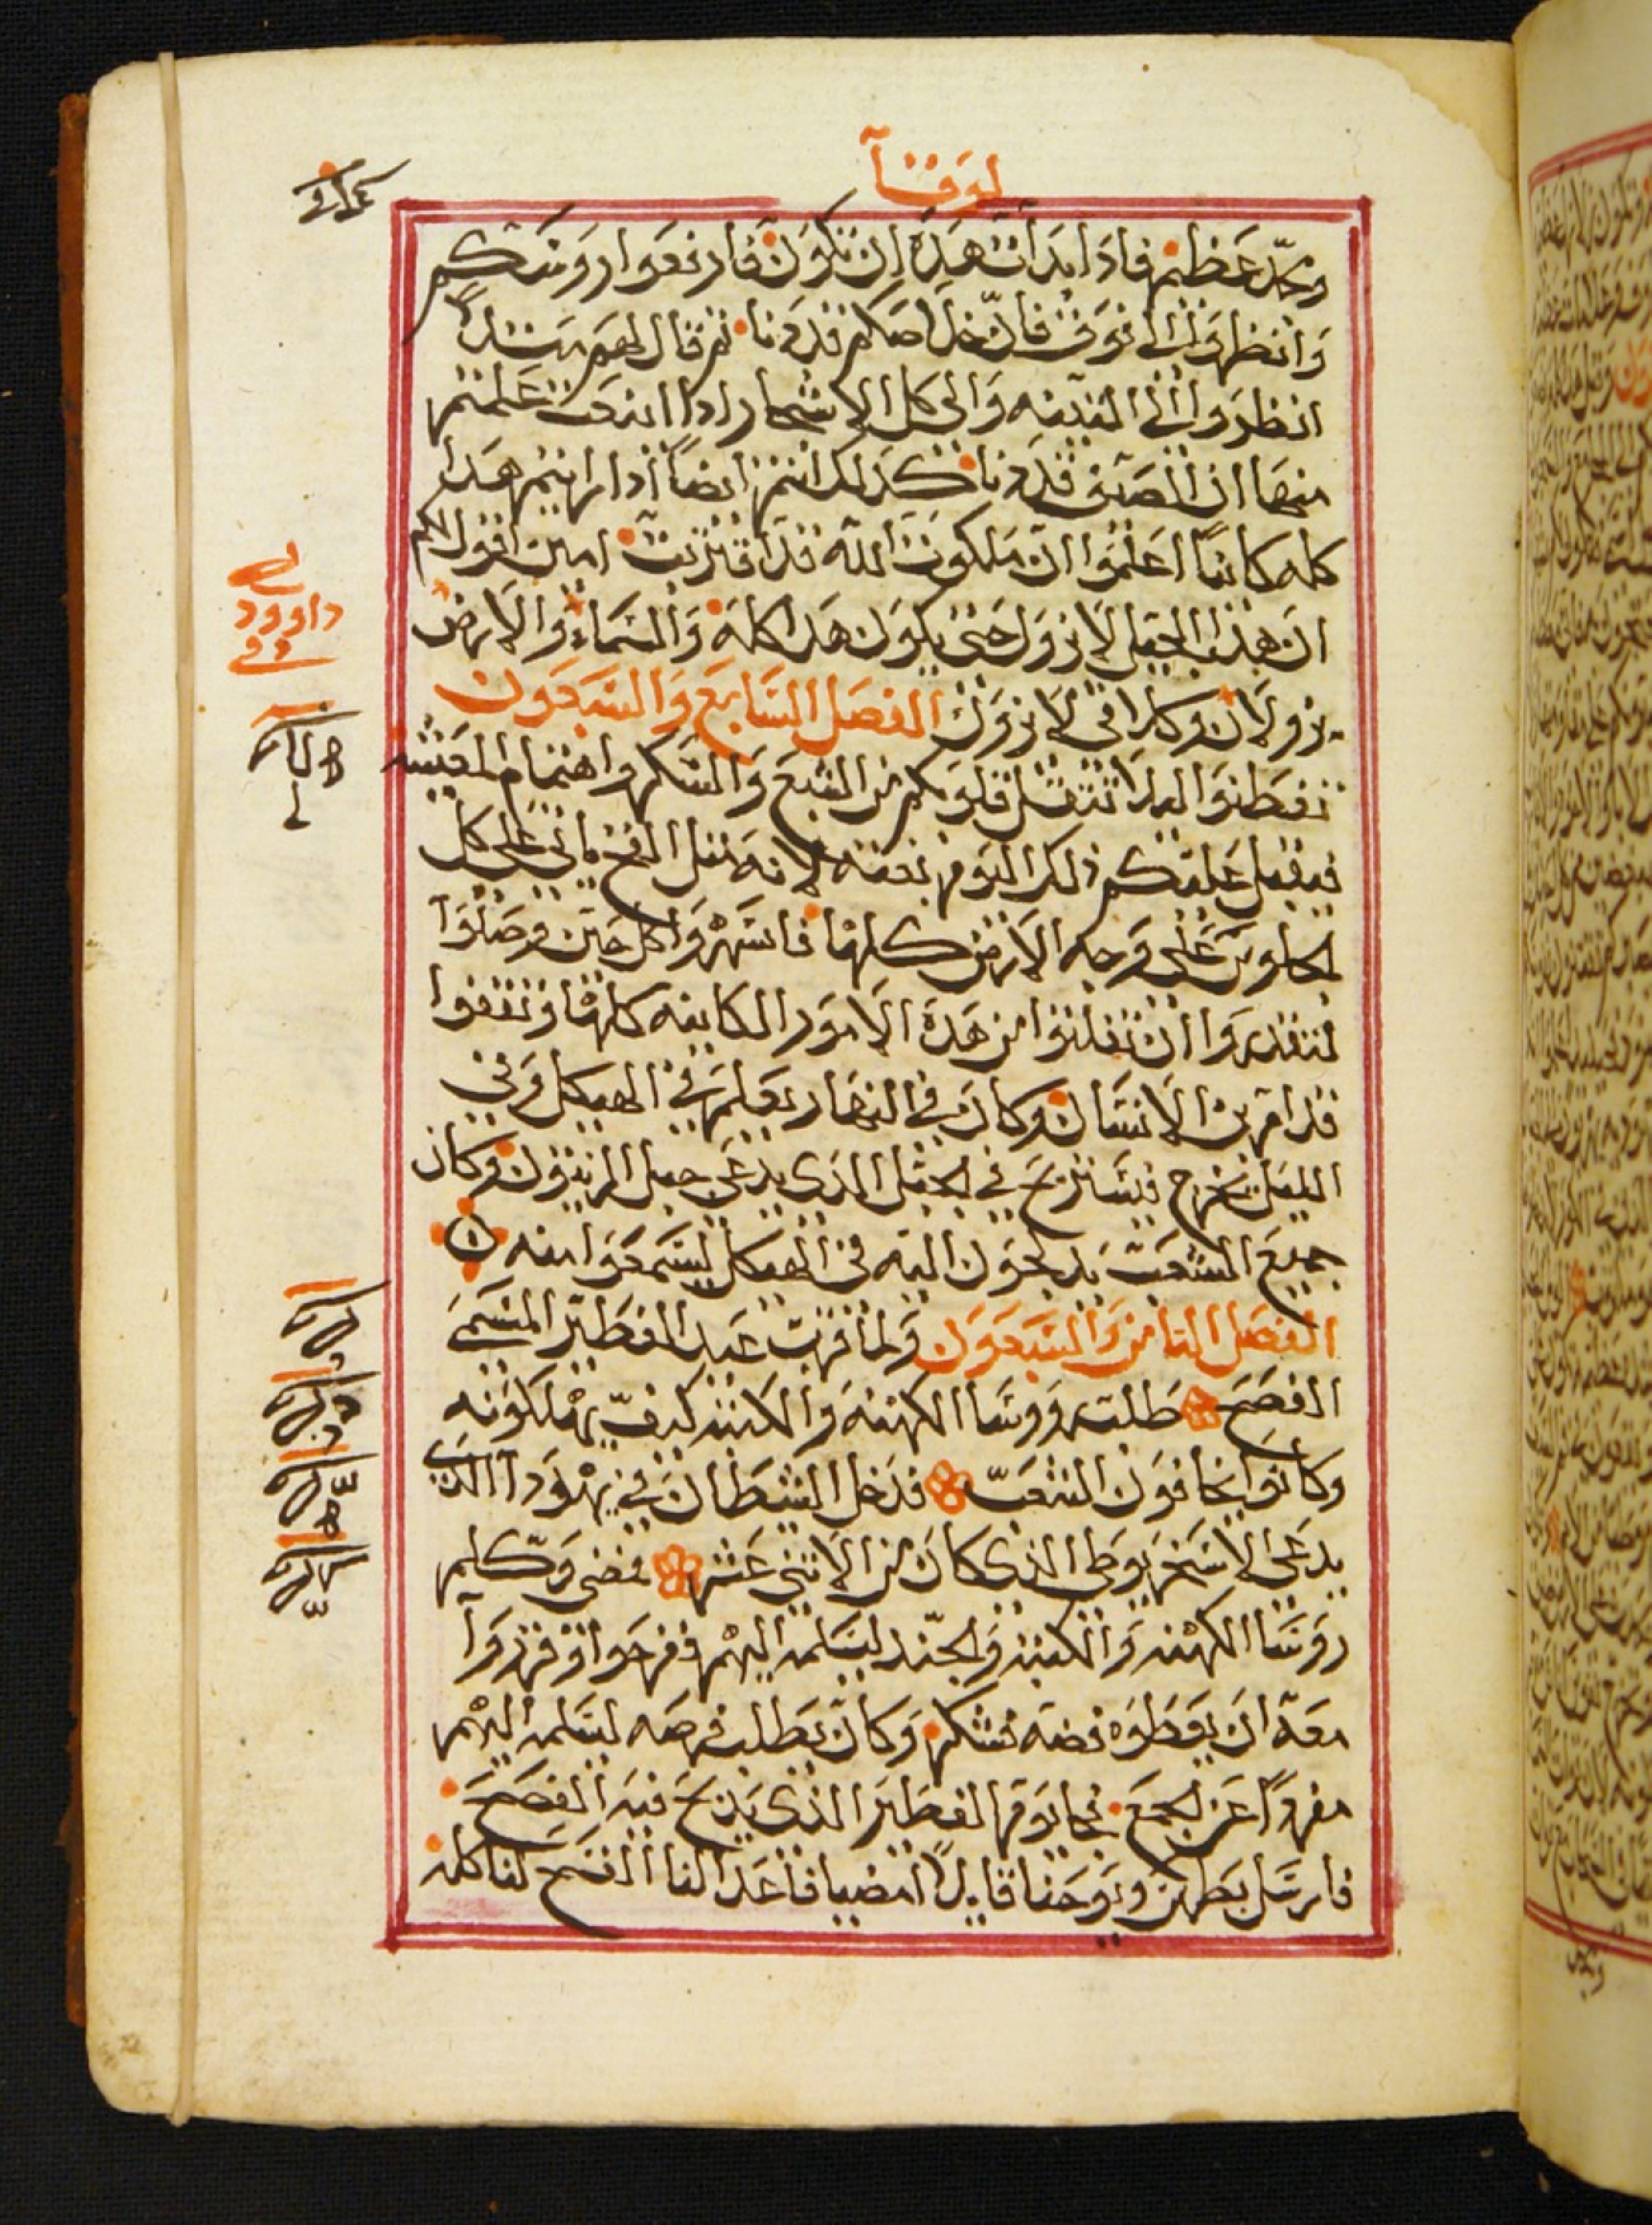 لوقا
ومجد عظيم فاذا بدات هذه ان تكون فارفعوا روسكم
وانظروا الى فوق فان خلاصكم قد دنا ثم قال لهم مثلاً
انظروا الى التينه والى كل الاشجار اذا اينعت علمتم
منها ان الصيف قد دنا كذلك انتم ايضاً اذا رايتم هذا
كله كايناً اعلموا ان ملكوت الله قد اقتربت امين اقول لكم
ان هذا الجيل لا يزول حتى يكون هذا كله والسماء والارض
يزولان وكلامي لا يزول الفصل السابع والسبعون
تفطنوا ليلا تثقل قلوبكم من الشبع والسكر واهتمام المعيشه
فيقبل عليكم ذلك اليوم بغته لانه مثل الفخ ياتي على كل
الجلوس على وجه الارض كلها فاسهروا كل حين وصلوا
لتقدروا ان تفلتوا من هذه الامور الكاينه كلها وتقفوا
قدام ابن الانسان وكان في النهار يعلم في الهيكل وفي
الليل يخرج فيستريح في الجبل الذي يدعى جبل الزيتون وكان
جميع الشعب يدلجون اليه في الهيكل ليسمعوا منه
الفصل الثامن والسبعون ولما قرب عيد الفطير المسمى
الفصح طلب روسا الكهنه والكتبه كيف يهلكونه
وكانوا يخافون الشعب فدخل الشيطان في يهودا الذي
يدعى الاسخريوطي الذي كان من الاثني عشر فمضى وكلم
روسا الكهنه والكتبه والجند ليسلمه اليهم ففرحوا وقرروا
معه ان يعطوه فضه فشكر وكان يطلب فرصه ليسلمه اليهم
مفرداً عن الجمع فجا يوم الفطير الذي يذبح فيه الفصح
فارسل بطرس ويوحنا قايلاً امضيا فاعدا لنا الفصح لناكله
داوود